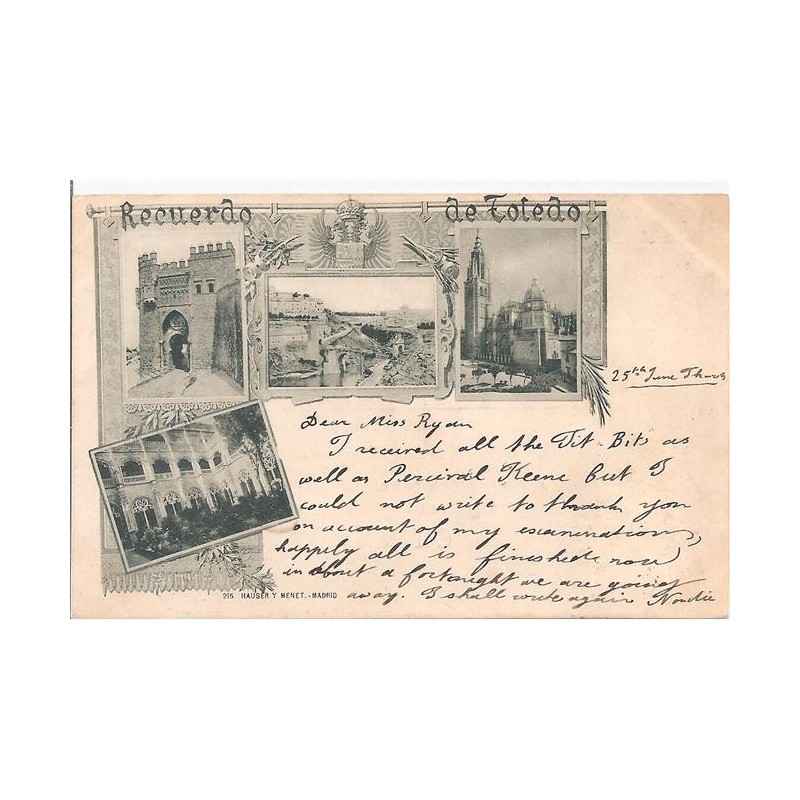 Recuerdo de Toledo
25th June Thurs
Dear Miss Ryan
I received all the Tit-Bits as
well as Percival Keene but I
could not write to thank you
on account of my examenations,
happily all is finished now
in about a fortnight we are going
away. I shall write again
215 HAUSER Y MENET.-MADRID